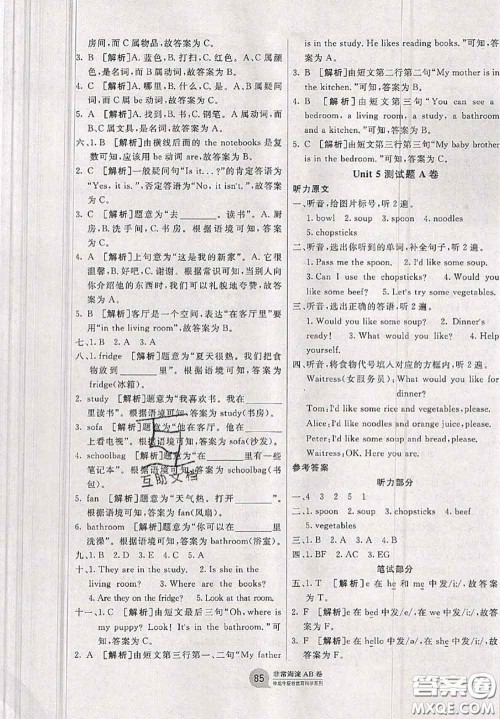 房间,而C属物品,故答案为C。
3. B [解析]A. 蓝色,B. 打扫,C. 红色。A、C属颜色,是名词,而B属动词,故答案为B。
4. C [解析]A. 哪里,B. 什么,C. 是。A、B属特殊疑问词,而C属be动词,故答案为C。
5. B [解析]A. 尺子,B. 床,C. 钢笔。A、C属文具,而B属名词,故答案为B。
六、1. B [解析]由横线后面的 the notebooks 是复数可知,应该用be动词are,故答案为B。
2. C [解析]一般疑问句“Is it...?”的肯定答语为“Yes, it is.”,否定答语为“No, it isn't.”,故答案为C。
3. C [解析]题意为“去____,读书”。A. 厨房,B. 洗手间,C. 书房。根据语境可知,答案为C。
4. A [解析]上句意为“这是我的新家”。A. 它很温馨,B. 你好,C. 谢谢。根据常识可知,当别人向你介绍他的东西时,我们可以礼貌地夸赞,故答案为A。
5. B [解析]客厅是一个空间,表达“在客厅里”用“in the living room”,故答案为B。
七、1. B 2. A 3. A
八、1. fridge [解析]题意为“夏天很热。我们把食物放到____里”。根据语境可知,答案为 fridge(冰箱)。
2. study [解析]题意为“我喜欢书。我在____里读书”。根据语境可知,答案为 study(书房)。
3. sofa [解析]题意为“他在客厅。他在____上看电视”。根据语境可知,答案为 sofa(沙发)。
4. schoolbag [解析]题意为“在____里有一些笔记本”。根据语境可知,答案为 schoolbag(书包)。
5. fan [解析]题意为“天气热。打开____”。根据语境可知,答案为 fan(风扇)。
6. bathroom [解析]题意为“你可以在____里洗澡”。根据语境可知,答案为 bathroom(浴室)。
九、1. B 2. D 3. A 4. C
十、1. She is in the study. 2. Is she in the living room? 3. They are on the fridge.
4. Are they on the fridge? 5. Look at the cat.
十一、1. C [解析]由短文最后三句“Oh, where is my puppy? Look! It's in the bathroom.”可知,答案为C。
2. A [解析]由短文第三行第一、二句“My father
is in the study. He likes reading books.”可知,答案为A。
3. B [解析]由短文第二行第二句“My mother is in the kitchen.”可知,答案为B。
4. B [解析]由短文第三行“You can see a bedroom, a bedroom, a bathroom and a kitchen.”可知,答案为B。
5. A [解析]由短文第三行第三句“My baby brother is in the bedroom.”可知,答案为A。
Unit 5 测试题 A 卷
听力原文
一、听音,给图片标号,听2遍。
1. bowl 2. soup 3. spoon 4. noodles
5. chopsticks
二、听音,选出你听到的单词,补全句子,听2遍。
1. Pass me the spoon. 2. I'd like some soup.
3. Can I use the chopsticks? 4. I'd like some vegetables. 5. Would you like some beef?
三、听音,选出正确的答语,听2遍。
1. Would you like some soup? 2. Dinner's ready! 3. What would you like for dinner?
四、听音,将食物代号填入对应方框内,听2遍。
Waitress(女服务员): What would you like for dinner?
Tom: I'd like some rice and vegetables, please.
Alice: I'd like some bread and noodles, please.
Peter: I'd like some beef and soup, please.
Waitress: OK. Here you are.
参考答案
听力部分
一、4 3 2 5 1
二、1. spoon 2. soup 3. chopsticks 4. vegetables 5. beef
三、1. B 2. A 3. B 四、AC BF EG
笔试部分
五、1. T [解析]e在 he 和 me 中发/iː/,故答案为T。
2. F [解析]e在 bed 中发/e/,在 she 中发/iː/,故答案为F。
3. F [解析]e在 hello 中发/ə/,在 she 中发/iː/,故答案为F。
85
非常海淀AB卷
互助文档